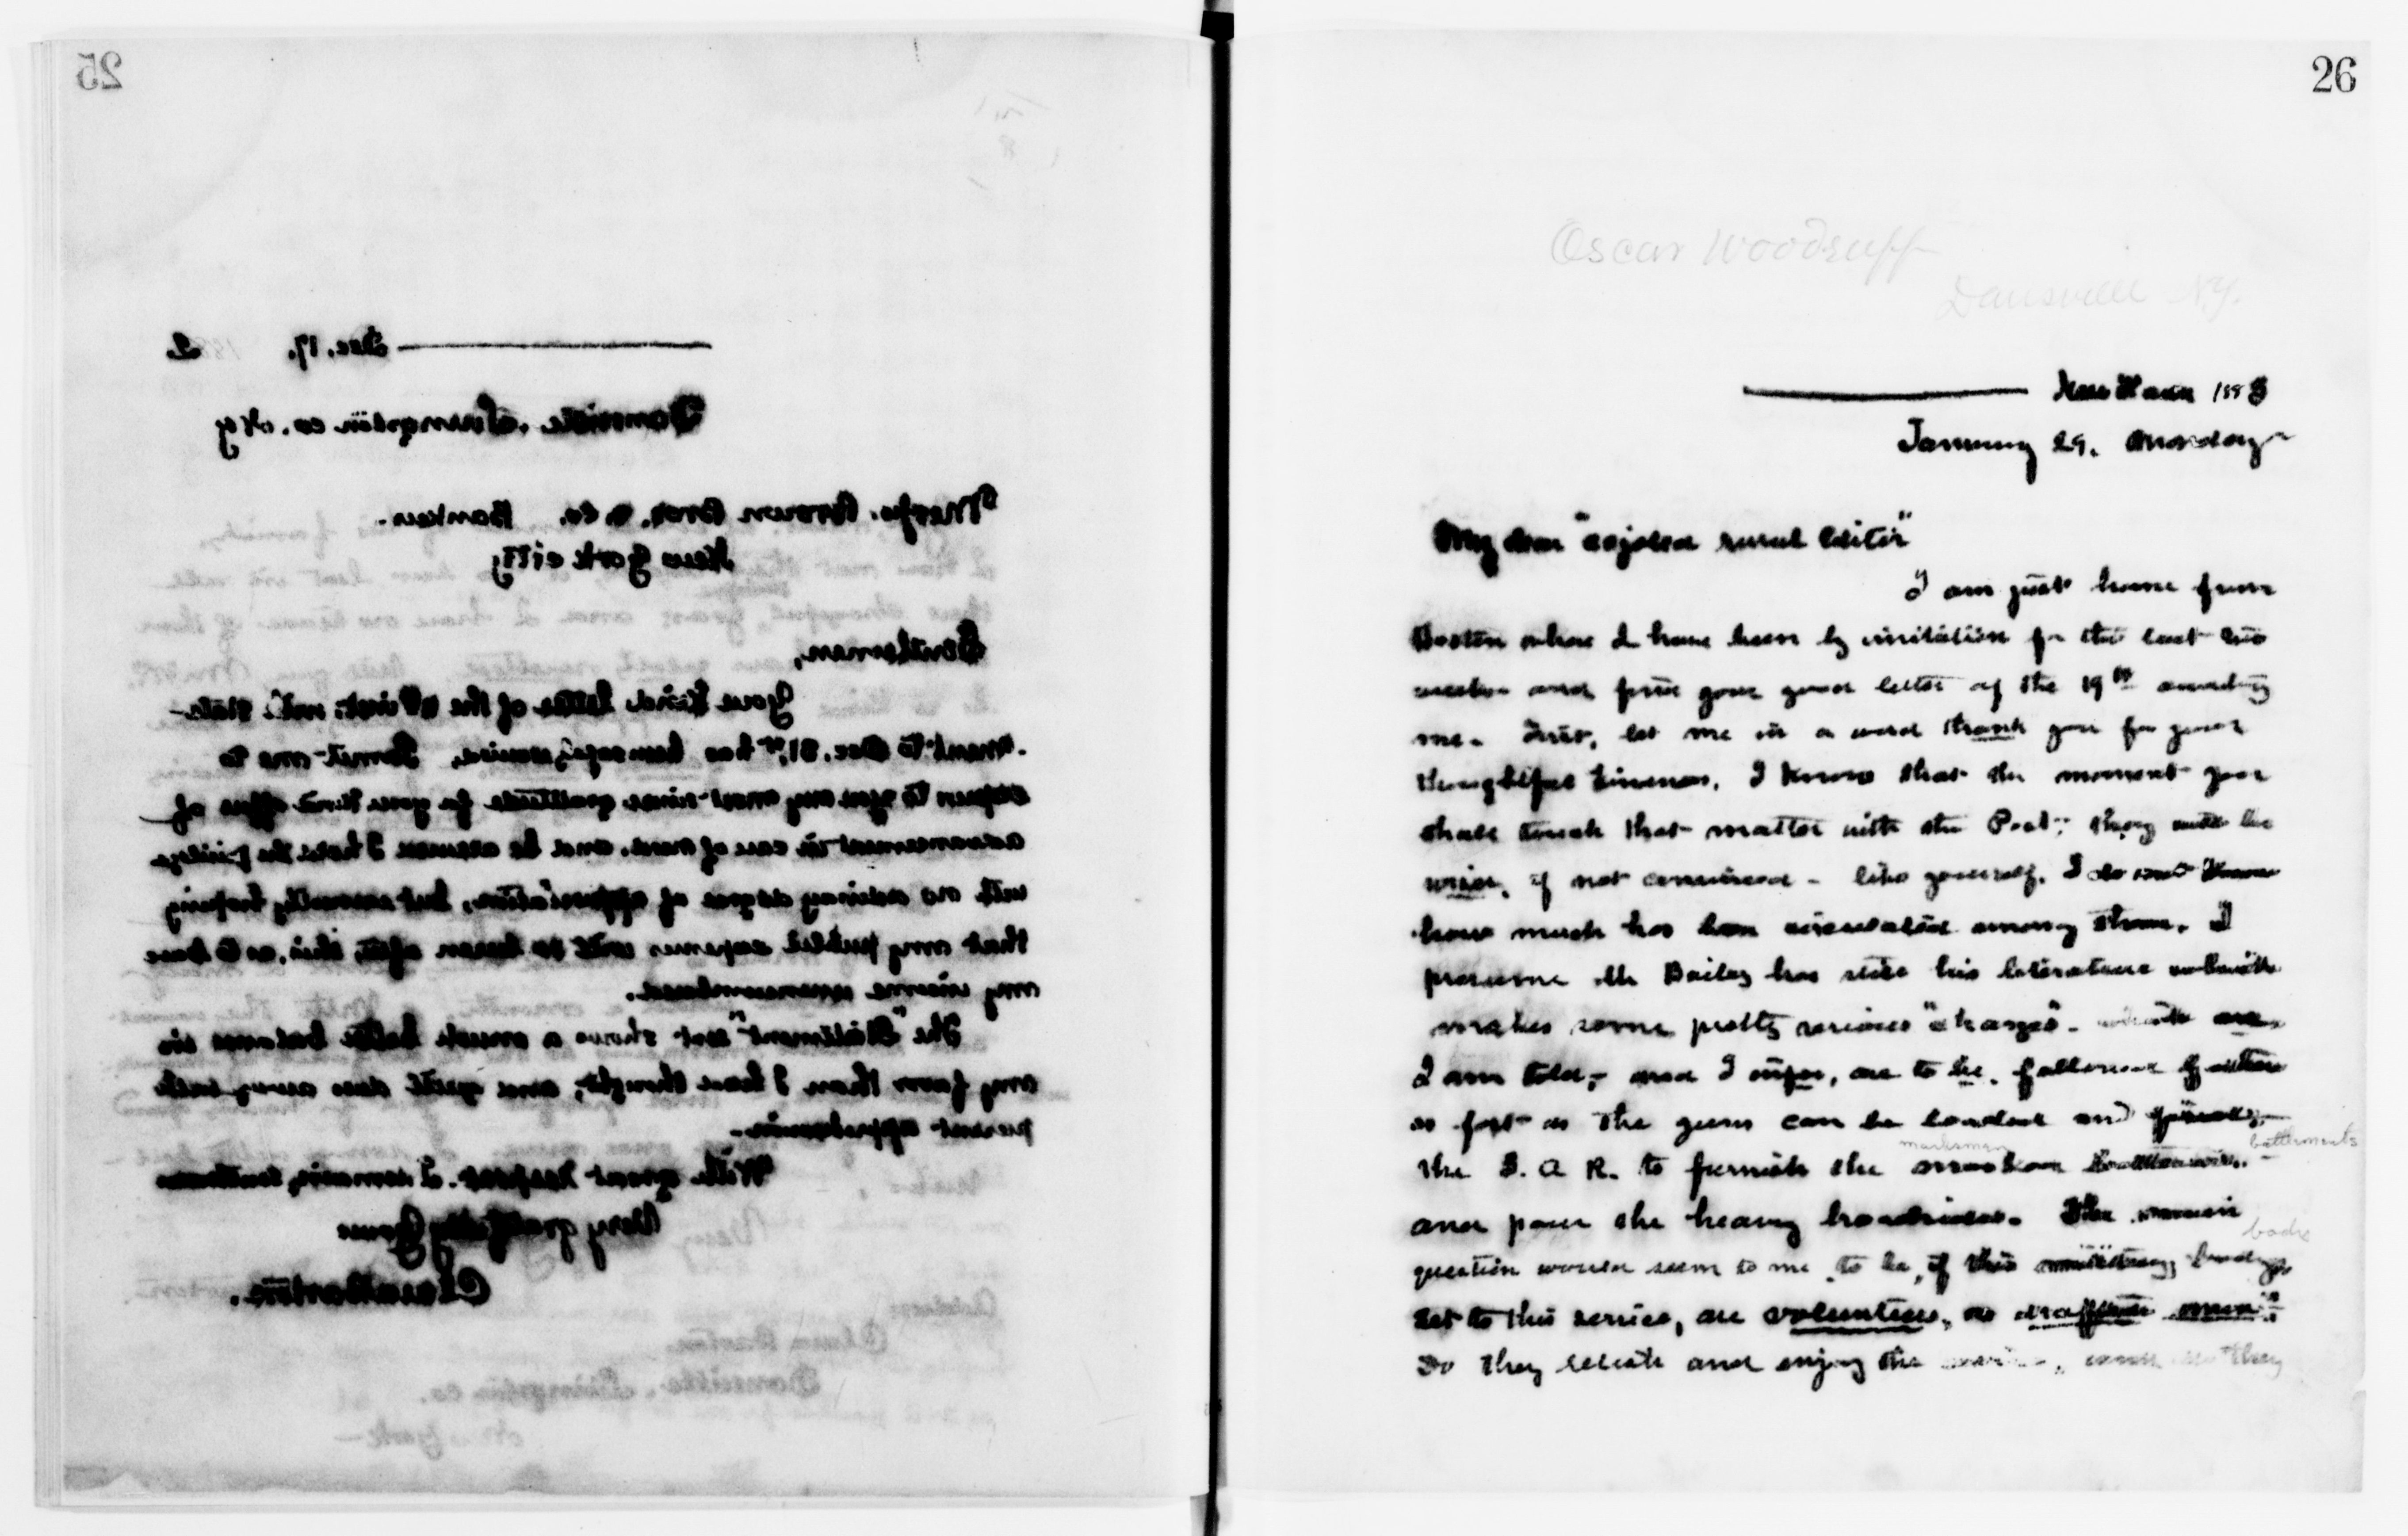 25
Dec. 17. 188 2
Dansville. Livingston co. N.Y
Messrs. Brown Bros. & Co. Bankers.
New York city
Gentlemen,
Your kind letter of the inst. with state-
ment to Dec. 31,st has been received. Permit me to
express to you my most sincere gratitude for your kind offer of
accommodation in case of need. and be assured I hold the privilege
with no ordinary degree of appreciation, but earnestly hoping
that my public expenses will so lessen after this, as to leave
my income unencumbered.
The "Statement" sent shows a much better balance in
my favor than I have thought, and quite does away with
present apprehension.
With great respect. I remain, Gentlemen
Very gratefully Yours
Clara Barton.
Address
Clara Barton
Dansville. Livingston co.
New York-
26
Oscar Woodruff
Dansville N.Y.
New Haven 1883
January 29. Monday
My dear "rural Editor"
I am just home from
Boston where I have been by invitation for the last two
weeks and find your good letter of the 19th awaiting
me. First, let me in a word thank you for your
thoughtful kindness. I know that the moment you
shall touch that matter with the Post; they will be
wiser, if not convinced - like yourself. I do not know
how much has been circulated among them. I
presume Mr Bailey has sent his literature which
makes some pretty serious "charges". which are
I am told, and I infer, are to be followed by others
as fast as the guns can be loaded and
marksmen battlements
the G. A. R. to furnish the
and pour the heavy broadsides. The main
bodies
question would seem to me to be, if this military
set to this service, are volunteers, or drafted men"?
Do they relish and enjoy the and they